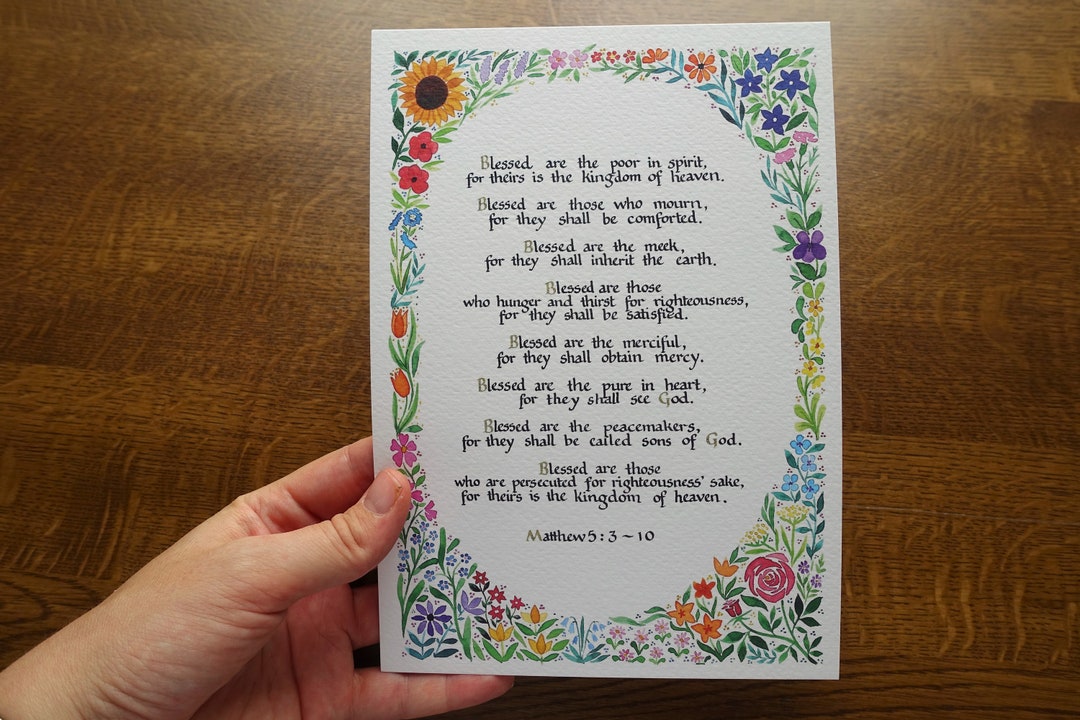 Blessed are the poor in spirit,
for theirs is the kingdom of heaven.
Blessed are those who mourn,
for they shall be comforted.
Blessed are the meek,
for they shall inherit the earth.
Blessed are those
who hunger and thirst for righteousness,
for they shall be satisfied.
Blessed are the merciful,
for they shall obtain mercy.
Blessed are the pure in heart,
for they shall see God.
Blessed are the peacemakers,
for they shall be called sons of God.
Blessed are those
who are persecuted for righteousness' sake,
for theirs is the kingdom of heaven.
Matthew 5:3~10